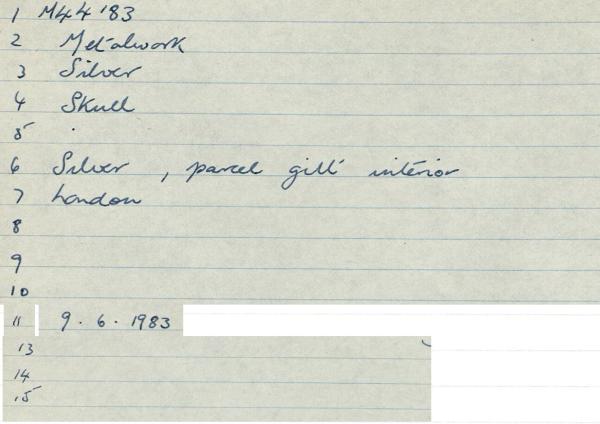 1 M44'83
2 Metalwork
3 Silver
4 Skull
5 .
6 Silver , parcel gilt interior
7 London
8
9
10
11 9.6.1983
13
14
15